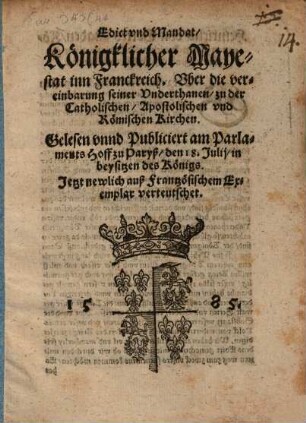 Edict vnd Mandat/
Königklicher Maye-
stat inn Franckreich. Vber die ver-
einbarung seiner Vnderthanen/ zu der
Catholischen/ Apostolischen vnd
Römischen Kirchen.
Gelesen vnnd Publiciert am Parla-
ments Hoff zu Paryß/ den 18. Julij/ in
beysitzen des Königs.
Jetzt newlich auß Frantzösischem Ex-
emplar verteutschet.
1585.
14.